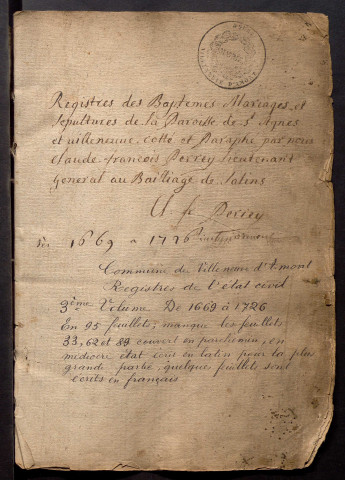 Registres des Baptemes Mariages, et
sepultures de la Paroisse de St Agnes
et villeneuve cotté et Paraphé par nous
Claude-francois Perrey Lieutenant
General au Bailliage de Salins
C f Perrey
1669 a 1726
Commune de Villeneuve d'Amont
Registres de l'état civil
3ème Volume De 1669 à 1726
En 95 feuillets, manque les feuillets
33, 62 et 89 couvert en parchemin, en
médiocre état écrit en latin pour la plus
grande partie, quelques feuillets sont
écrits en français